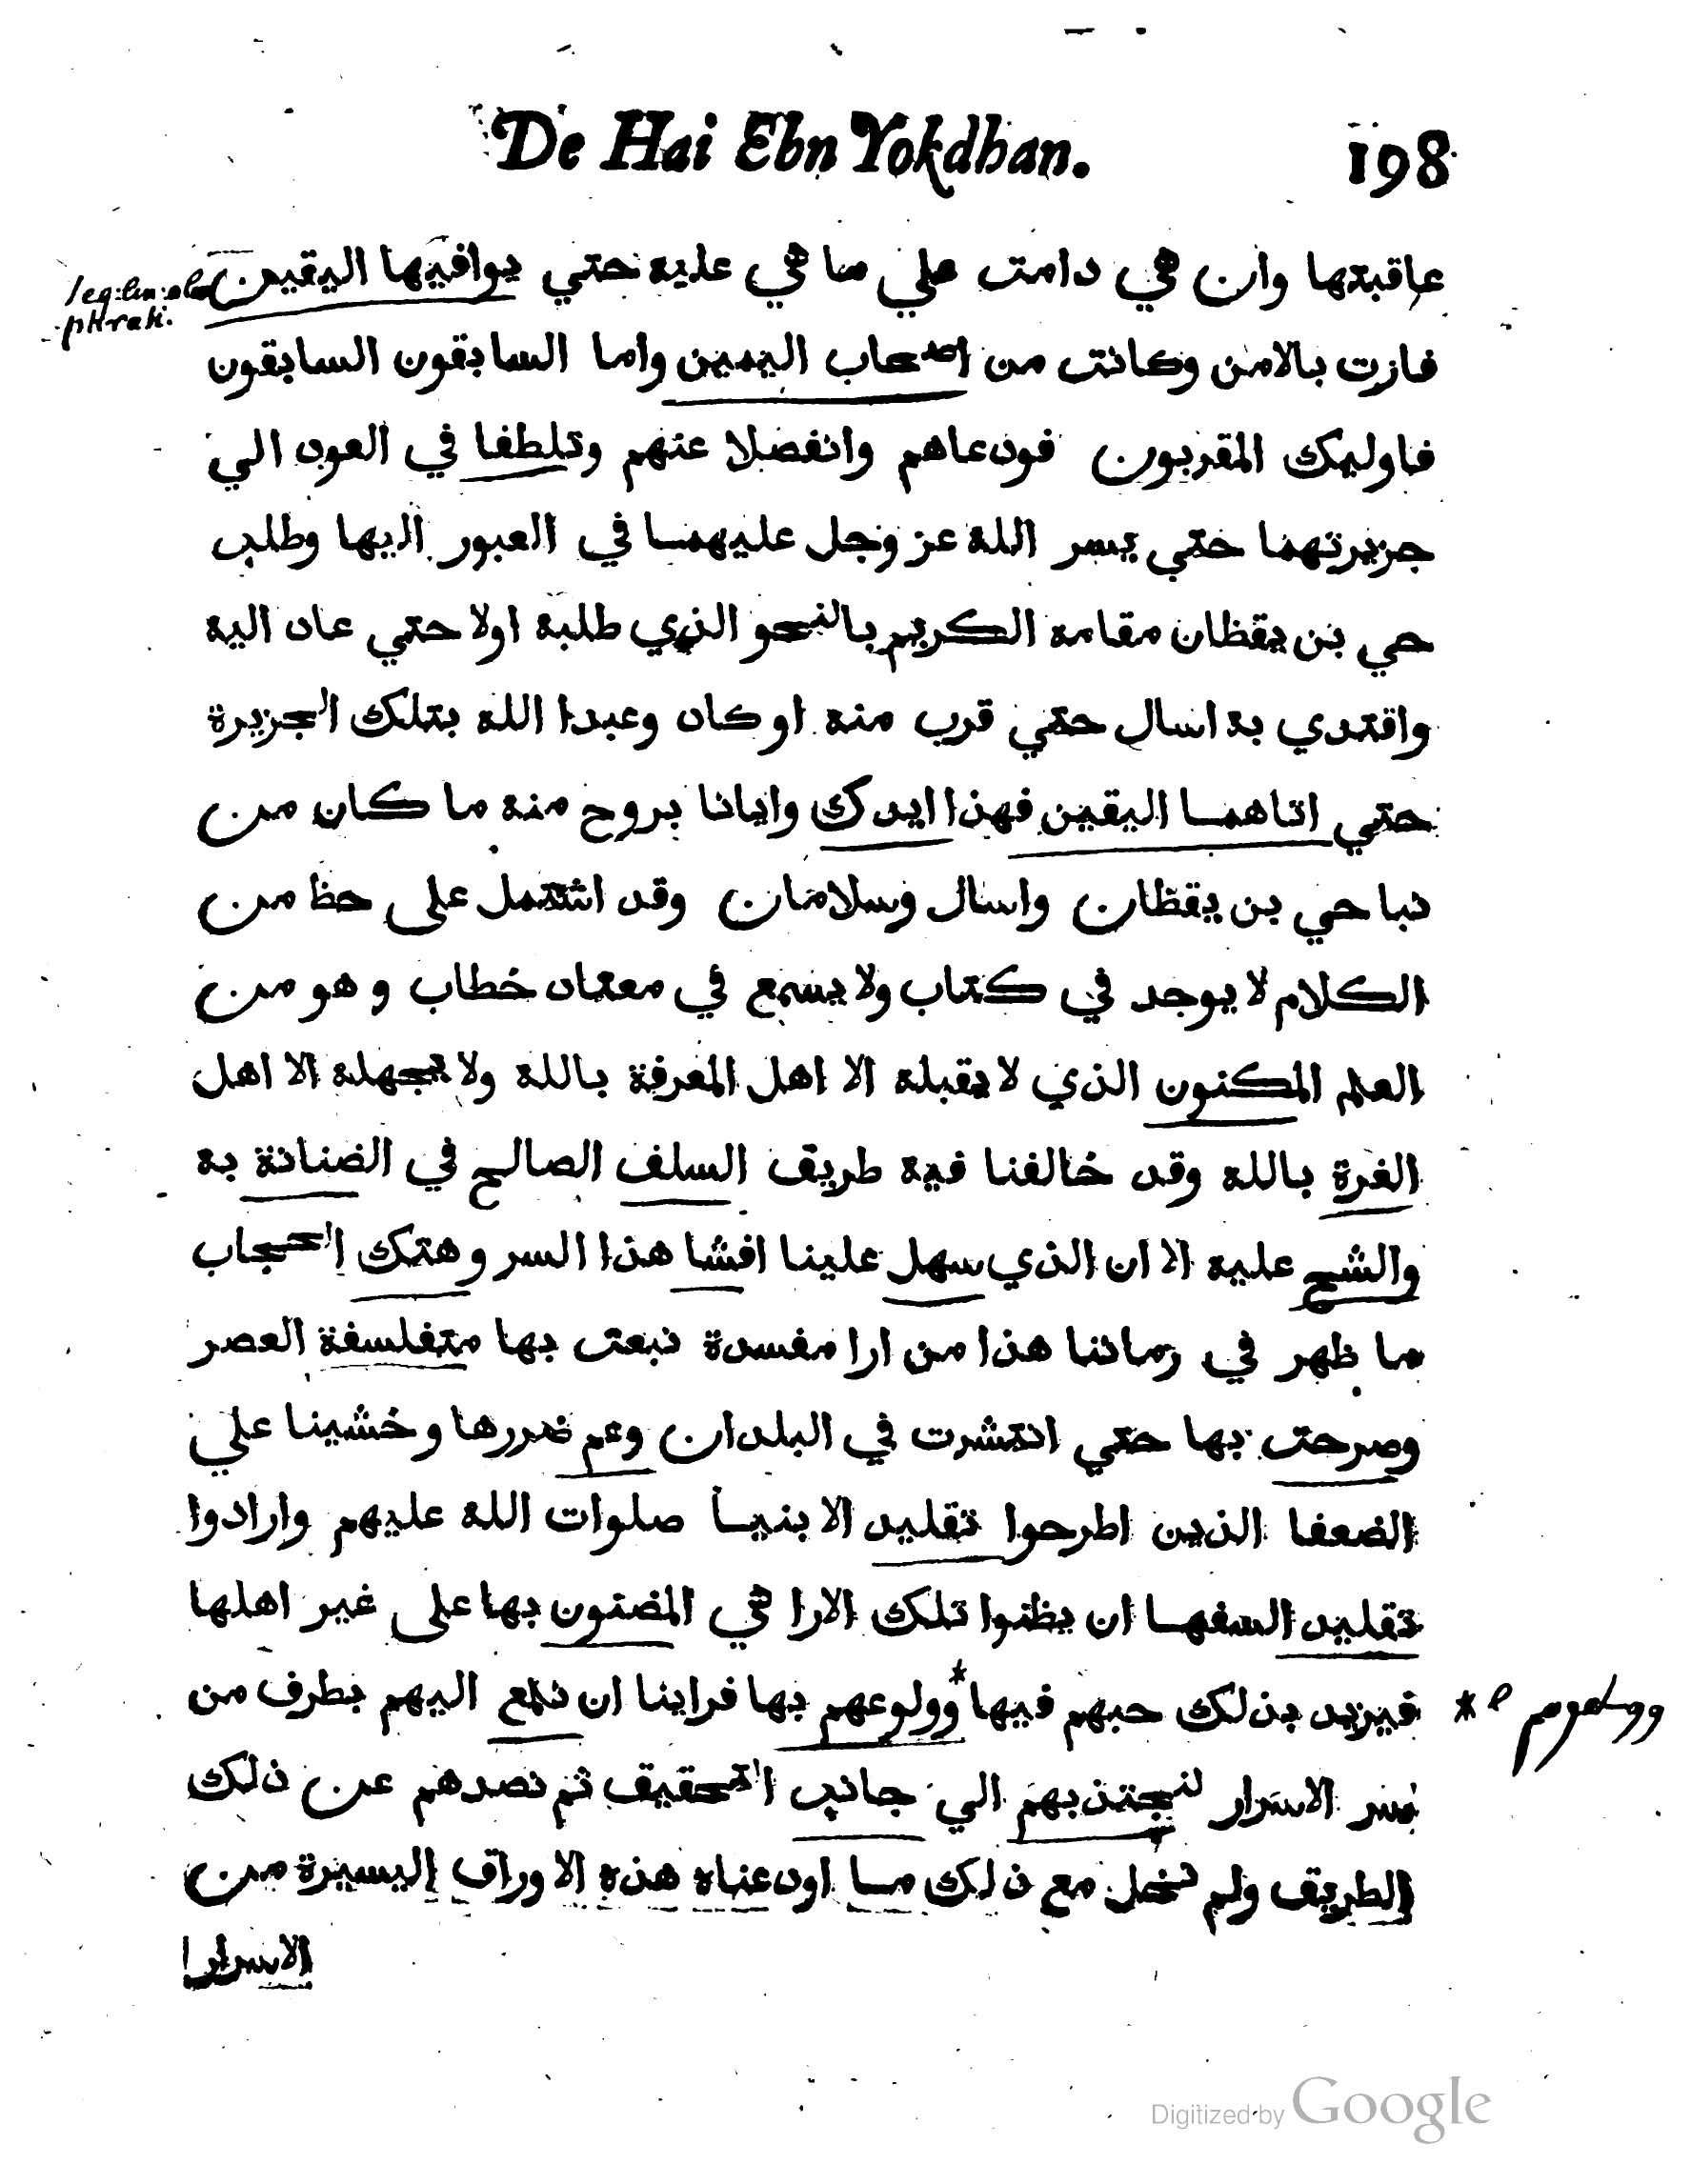 De Hai Ebn Yokdhan. 198
عاقبتها وان هي دامت علي ما هي عليه حتي يوافيها اليقين
فازت بالامن وكانت من اصحاب اليمين واما السابقون السابقون
فاوليك المقربون فودعاهم وانفصلا عنهم وتلطفا في العود الي
جزيرتهما حتي يسر الله عز وجل عليهما في العبور اليها وطلب
حي بن يقظان مقامه الكريم بالنحو الذي طلبه اولا حتي عاد اليه
واقتدي به اسال حتي قرب منه او كاد وعبدا الله بتلك الجزيرة
حتي اتاهما اليقين فهذا ايدك وايانا بروح منه ما كان من
نبا حي بن يقظان واسال وسلامان وقد اشتمل على حظ من
الكلام لا يوجد في كتاب ولا يسمع في معتاد خطاب وهو من
العلم المكنون الذي لا يقبله الا اهل المعرفة بالله ولا يجهله الا اهل
الغرة بالله وقد خالفنا فيه طريق السلف الصالح في الضنانة به
والشح عليه الا ان الذي سهل علينا افشا هذا السر وهتك الحجاب
ما ظهر في زماننا هذا من ارا مفسدة نبعت بها متفلسفة العصر
وصرحت بها حتي انتشرت في البلدان وعم ضررها وخشينا علي
الضعفا الذين اطرحوا تقليد الابنيا صلوات الله عليهم وارادوا
تقليد السفها ان يظنوا تلك الارا هي المضنون بها على غير اهلها
فيزيد بذلك حبهم فيها *وولوعهم بها فراينا ان نلمع اليهم بطرف من
سر الاسرار لنجتذبهم الي جانب التحقيق ثم نصدهم عن ذلك
الطريق ولم نخل مع ذلك ما اودعناه هذه الاوراق اليسيرة من
الاسرار
Digitized by Google